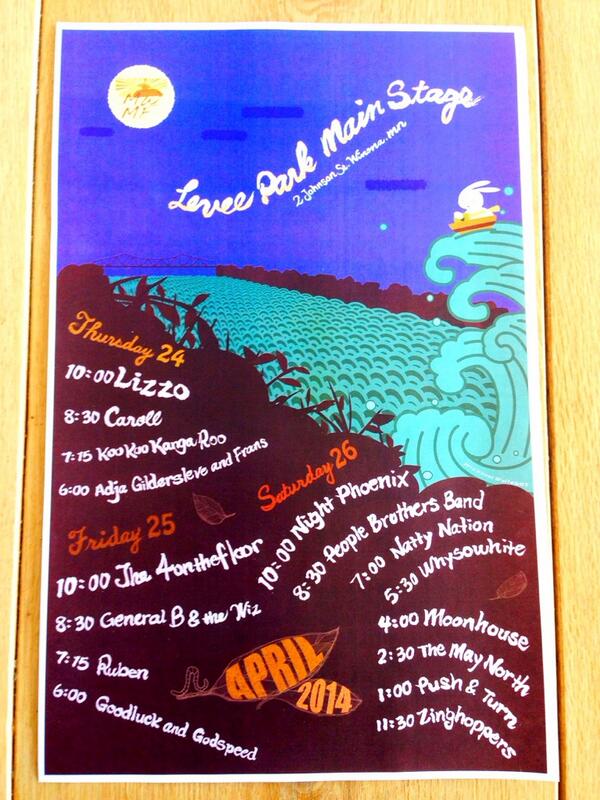 MWMF
Levee Park Main Stage
2 Johnson St. Winona, mn
Thursday 24
10:00 Lizzo
8:30 Caroll
7:15 Koo Koo Kanga Roo
6:00 Adja Gildersleve and Frans
Friday 25
10:00 The 4onthefloor
8:30 General B & the Wiz
7:15 Ruben
6:00 Goodluck and Godspeed
Saturday 26
10:00 Night Phoenix
8:30 People Brothers Band
7:00 Natty Nation
5:30 Whysowhite
4:00 Moonhouse
2:30 The May North
1:00 Push & Turn
11:30 Zinghoppers
APRIL
2014